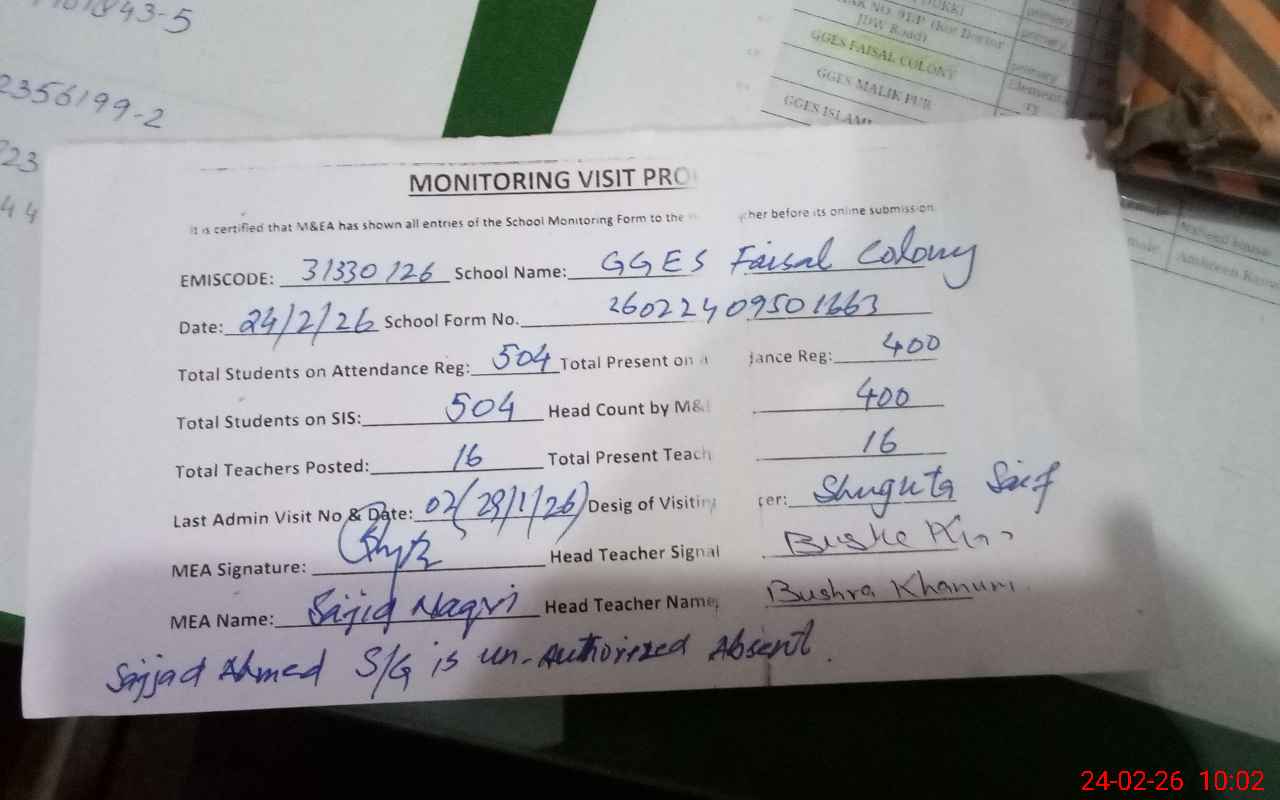 43-5
2356199-2
23
44
JDW Road)
GGES FAISAL COLONY
GGES MALIK PUR
primary
primary
primary
MONITORING VISIT PRO
It is certified that M&EA has shown all entries of the School Monitoring Form to the cher before its online submission.
EMISCODE: 31330126 School Name: GGES Faisal Colony
Date: 24/2/26 School Form No. 26022409501663
Total Students on Attendance Reg: 504 Total Present on a dance Reg: 400
Total Students on SIS: 504 Head Count by M& 400
Total Teachers Posted: 16 Total Present Teach 16
Last Admin Visit No & Date: 02(29/1/26) Desig of Visitin cer: Shugufta Saif
MEA Signature: Head Teacher Signat
MEA Name: Sajid Naqvi Head Teacher Name Bushra Khanum.
Sajjad Ahmed S/G is un-Authorized Absent.
24-02-26 10:02